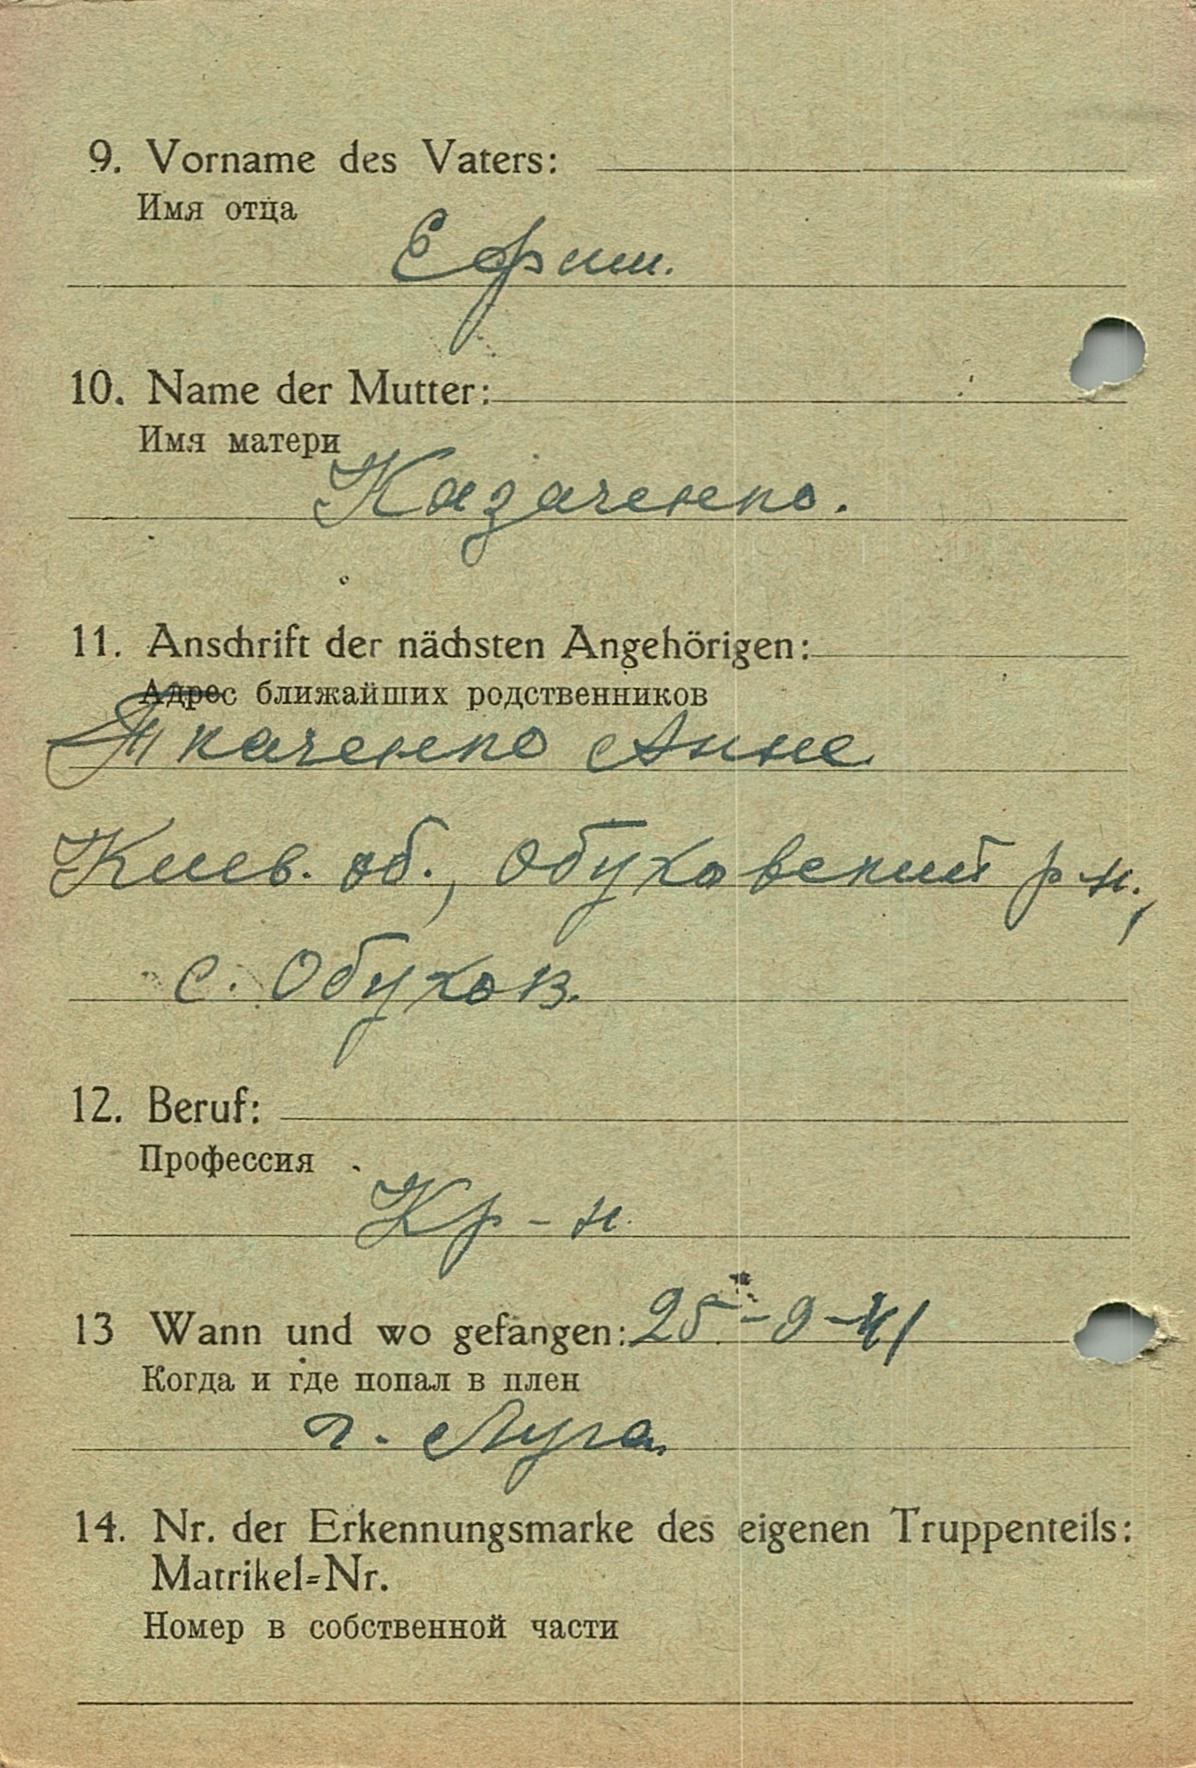 9. Vorname des Vaters:
Имя отца
Ефим.
10. Name der Mutter:
Имя матери
Казаченко.
11. Anschrift der nächsten Angehörigen:
Адрес ближайших родственников
Ткаченко Анне
Киев. об., Обуховский р н.,
с. Обухов.
12. Beruf:
Профессия
Кр-н.
13 Wann und wo gefangen: 25-9-41
Когда и где попал в плен
г. Луга.
14. Nr. der Erkennungsmarke des eigenen Truppenteils:
Matrikel-Nr.
Номер в собственной части